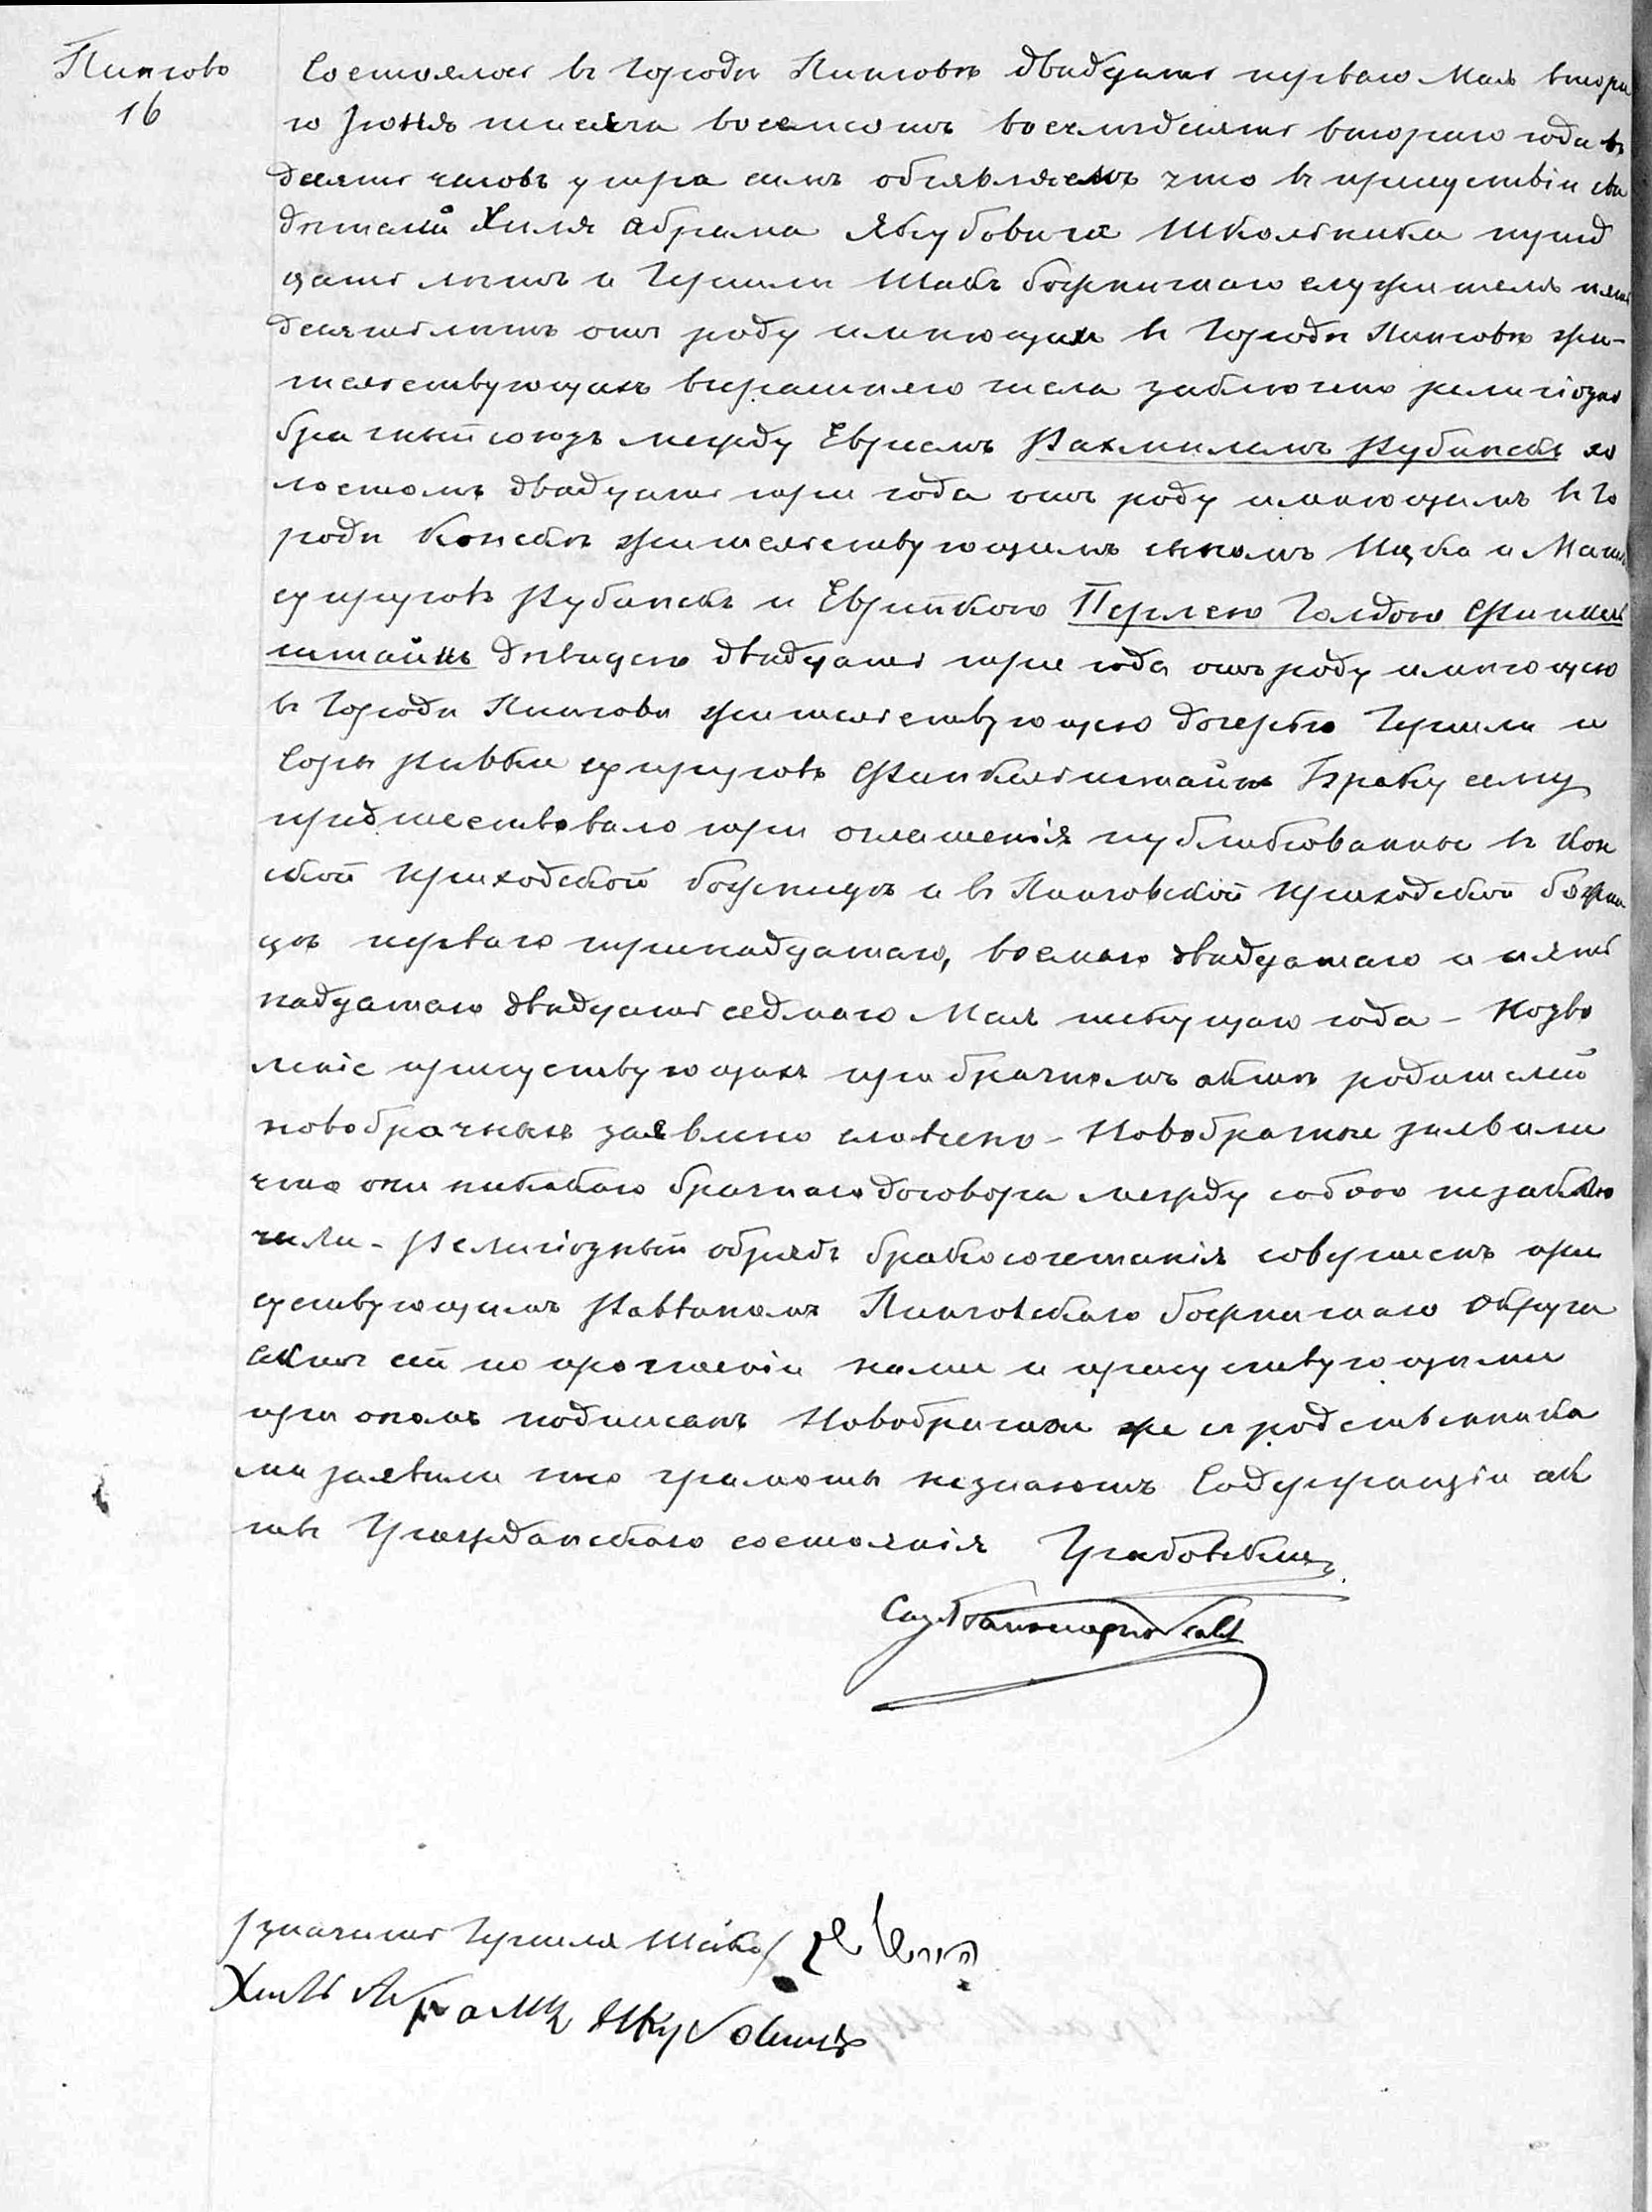 Пинчовъ
16
Состоялось въ Городѣ Пинчовѣ двадцать перваго Мая втора
го Іюня тысяча восемсотъ восемдесятъ втораго года въ
десять часовъ утра симъ объявляемъ что въ присутствіи сви
дѣтелей Хиля Абрама Якубовича Школьника
цать лѣтъ и Гершли божничнаго служителя пять
десятъ лѣтъ отъ роду имѣющихъ въ Городѣ Пинчовѣ жи-
тельствующихъ вчерашняго числа заключенъ религіозно
брачный союзъ между Евреемъ Рахмилемъ Рубинекъ хо
лостомъ двадцать три года отъ роду имѣющимъ въ Го
родѣ Конскѣ жительствующимъ сыномъ Ицка и
супруговъ Рубинекъ и Еврейкою Перлею Голдою Финкель
штайнъ дѣвицею двадцать три года отъ роду имѣющею
въ Городѣ Пинчовѣ жительствующею дочерью Гершли и
Соры Ривки супруговъ Финкельштайнъ Браку сему
предшествовало три оглашенія публикованные въ Кон
ской приходской божницѣ и въ Пинчовской приходской божни
цѣ перваго тринадцатаго, восмаго двадцатаго и пят
надцатаго двадцать седмаго Мая текущаго года - Позво
леніе присутствующихъ при брачномъ актѣ родителей
новобрачныхъ заявлено словесно - Новобрачные заявили
что они никакаго брачнаго договора между собою незаклю
чили - Религіозный обрядъ бракосочетанія совершенъ при
сутствующимъ Раввиномъ Пинчовскаго божничнаго Округа
Актъ сей по прочтеніи нами и присутствующими
при ономъ подписанъ Новобрачные же съ родственника
ми заявили что грамоты незнаютъ Содержащій ак
ты Гражданскаго состоянія
/значитъ Гершля
Хиль Абрамъ Якубовичъ